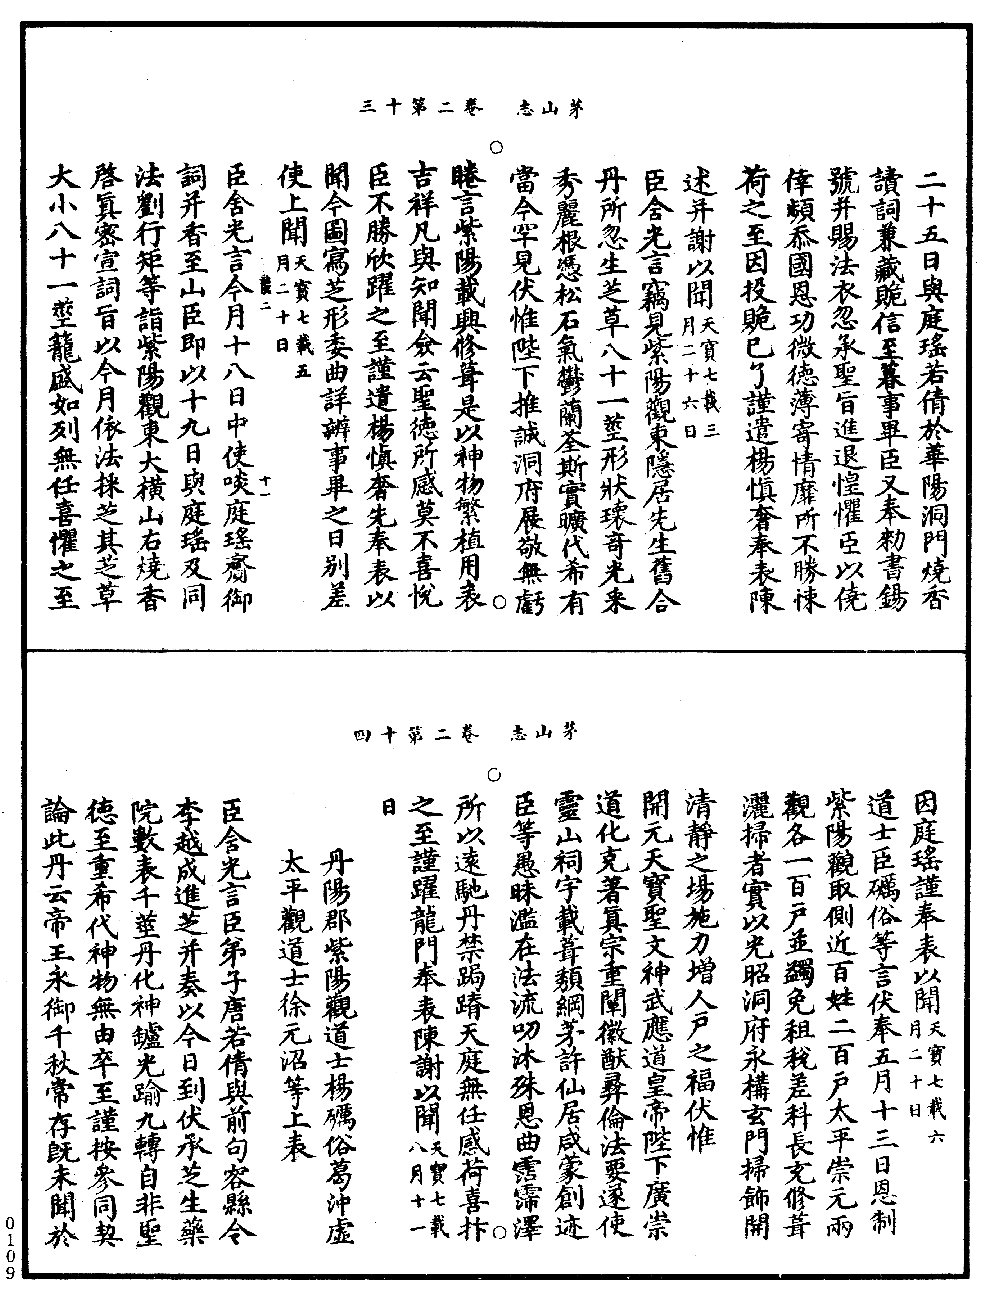 茅山志　卷二第十三
二十五日與庭瑤若倩於華陽洞門燒香
讀詞兼藏賝信至暮事畢臣又奉勑書錫
號并賜法衣忽承聖旨進退惶懼臣以僥
倖頻忝國恩功微徳薄寄情靡所不勝悚
荷之至因投賝已了謹遣楊慎奢奉表陳
述并謝以聞天寶七載三月二十六日
臣含光言竊見紫陽觀東隱居先生舊合
丹所忽生芝草八十一莖形狀瓌奇光采
秀麗根憑松石氣鬱蘭荃斯實曠代希有
當今罕見伏惟陛下推誠洞府展敬無虧
睠言紫陽載興修葺是以神物繁植用表
吉祥凡與知聞僉云聖徳所感莫不喜悅
臣不勝欣躍之至謹遣楊慎奢先奉表以
聞今圖寫芝形委曲詳辨事畢之日别差
使上聞天寶七載五月二十日
叢二　十一
臣含光言今月十八日中使啖庭瑤齎御
詞并香至山臣即以十九日與庭瑤及同
法劉行矩等詣紫陽觀東大橫山右燒香
啓眞密宣詞旨以今月依法採芝其芝草
大小八十一莖龍盛如列無任喜懼之至
茅山志　卷二第十四
因庭瑤謹奉表以聞天寶七載六月二十日
道士臣礪俗等言伏奉五月十三日恩制
紫陽觀取側近百姓二百戸太平崇元兩
觀各一百戸並蠲免租稅差科長充修葺
灑掃者實以光昭洞府永構玄門掃飾開
清靜之場施力增人戸之福伏惟
開元天寶聖文神武應道皇帝陛下廣崇
道化克著眞宗重闡徽猷彞倫法要遂使
靈山祠宇載葺頽綱茅許仙居咸蒙創迹
臣等愚昧濫在法流叨沐殊恩曲霑霈澤
所以遠馳丹禁跼蹐天庭無任感荷喜抃
之至謹躍龍門奉表陳謝以聞天寶七載八月十一
日
丹陽郡紫陽觀道士楊礪俗葛沖虛
太平觀道士徐元沼等上表
臣含光言臣弟子唐若倩與前句容縣令
李越成進芝并奏以今日到伏承芝生藥
院數表千莖丹化神鑪光踰九轉自非聖
徳至重希代神物無由卒至謹按參同契
論此丹云帝王永御千秋常存旣未聞於
0109